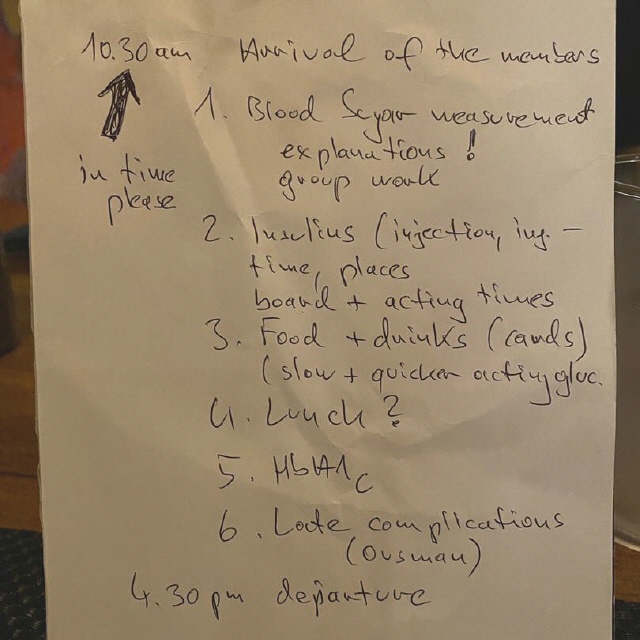 10.30 am Arrival of the members
in time
please
1. Blood Sugar measurement
explanations !
group work
2. Insulins (injection, inj. -
time, places
board + acting times
3. Food + drinks (cards)
(slow + quicker acting gluc.
4. Lunch ?
5. HbA1c
6. Late complications
(Ousman)
4.30 pm departure